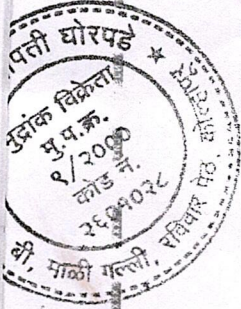 पती घोरपडे ★
मुद्रांक विक्रेता
मु.प.क्र.
९/२०००
कोड नं.
२६०१०२८
बी, माळी गल्ली, रविवार पेठ,